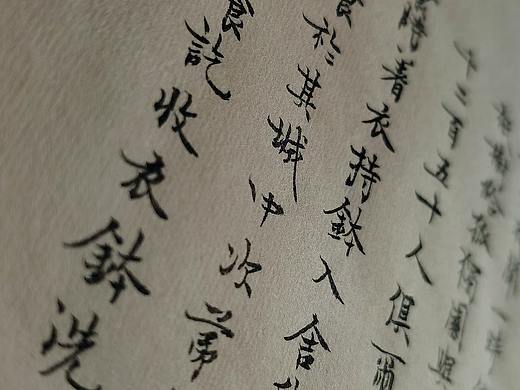 一時
樹給孤獨園與
千二百五十人俱爾
時著衣持鉢入舍
食於其城中次第
食訖收衣鉢洗